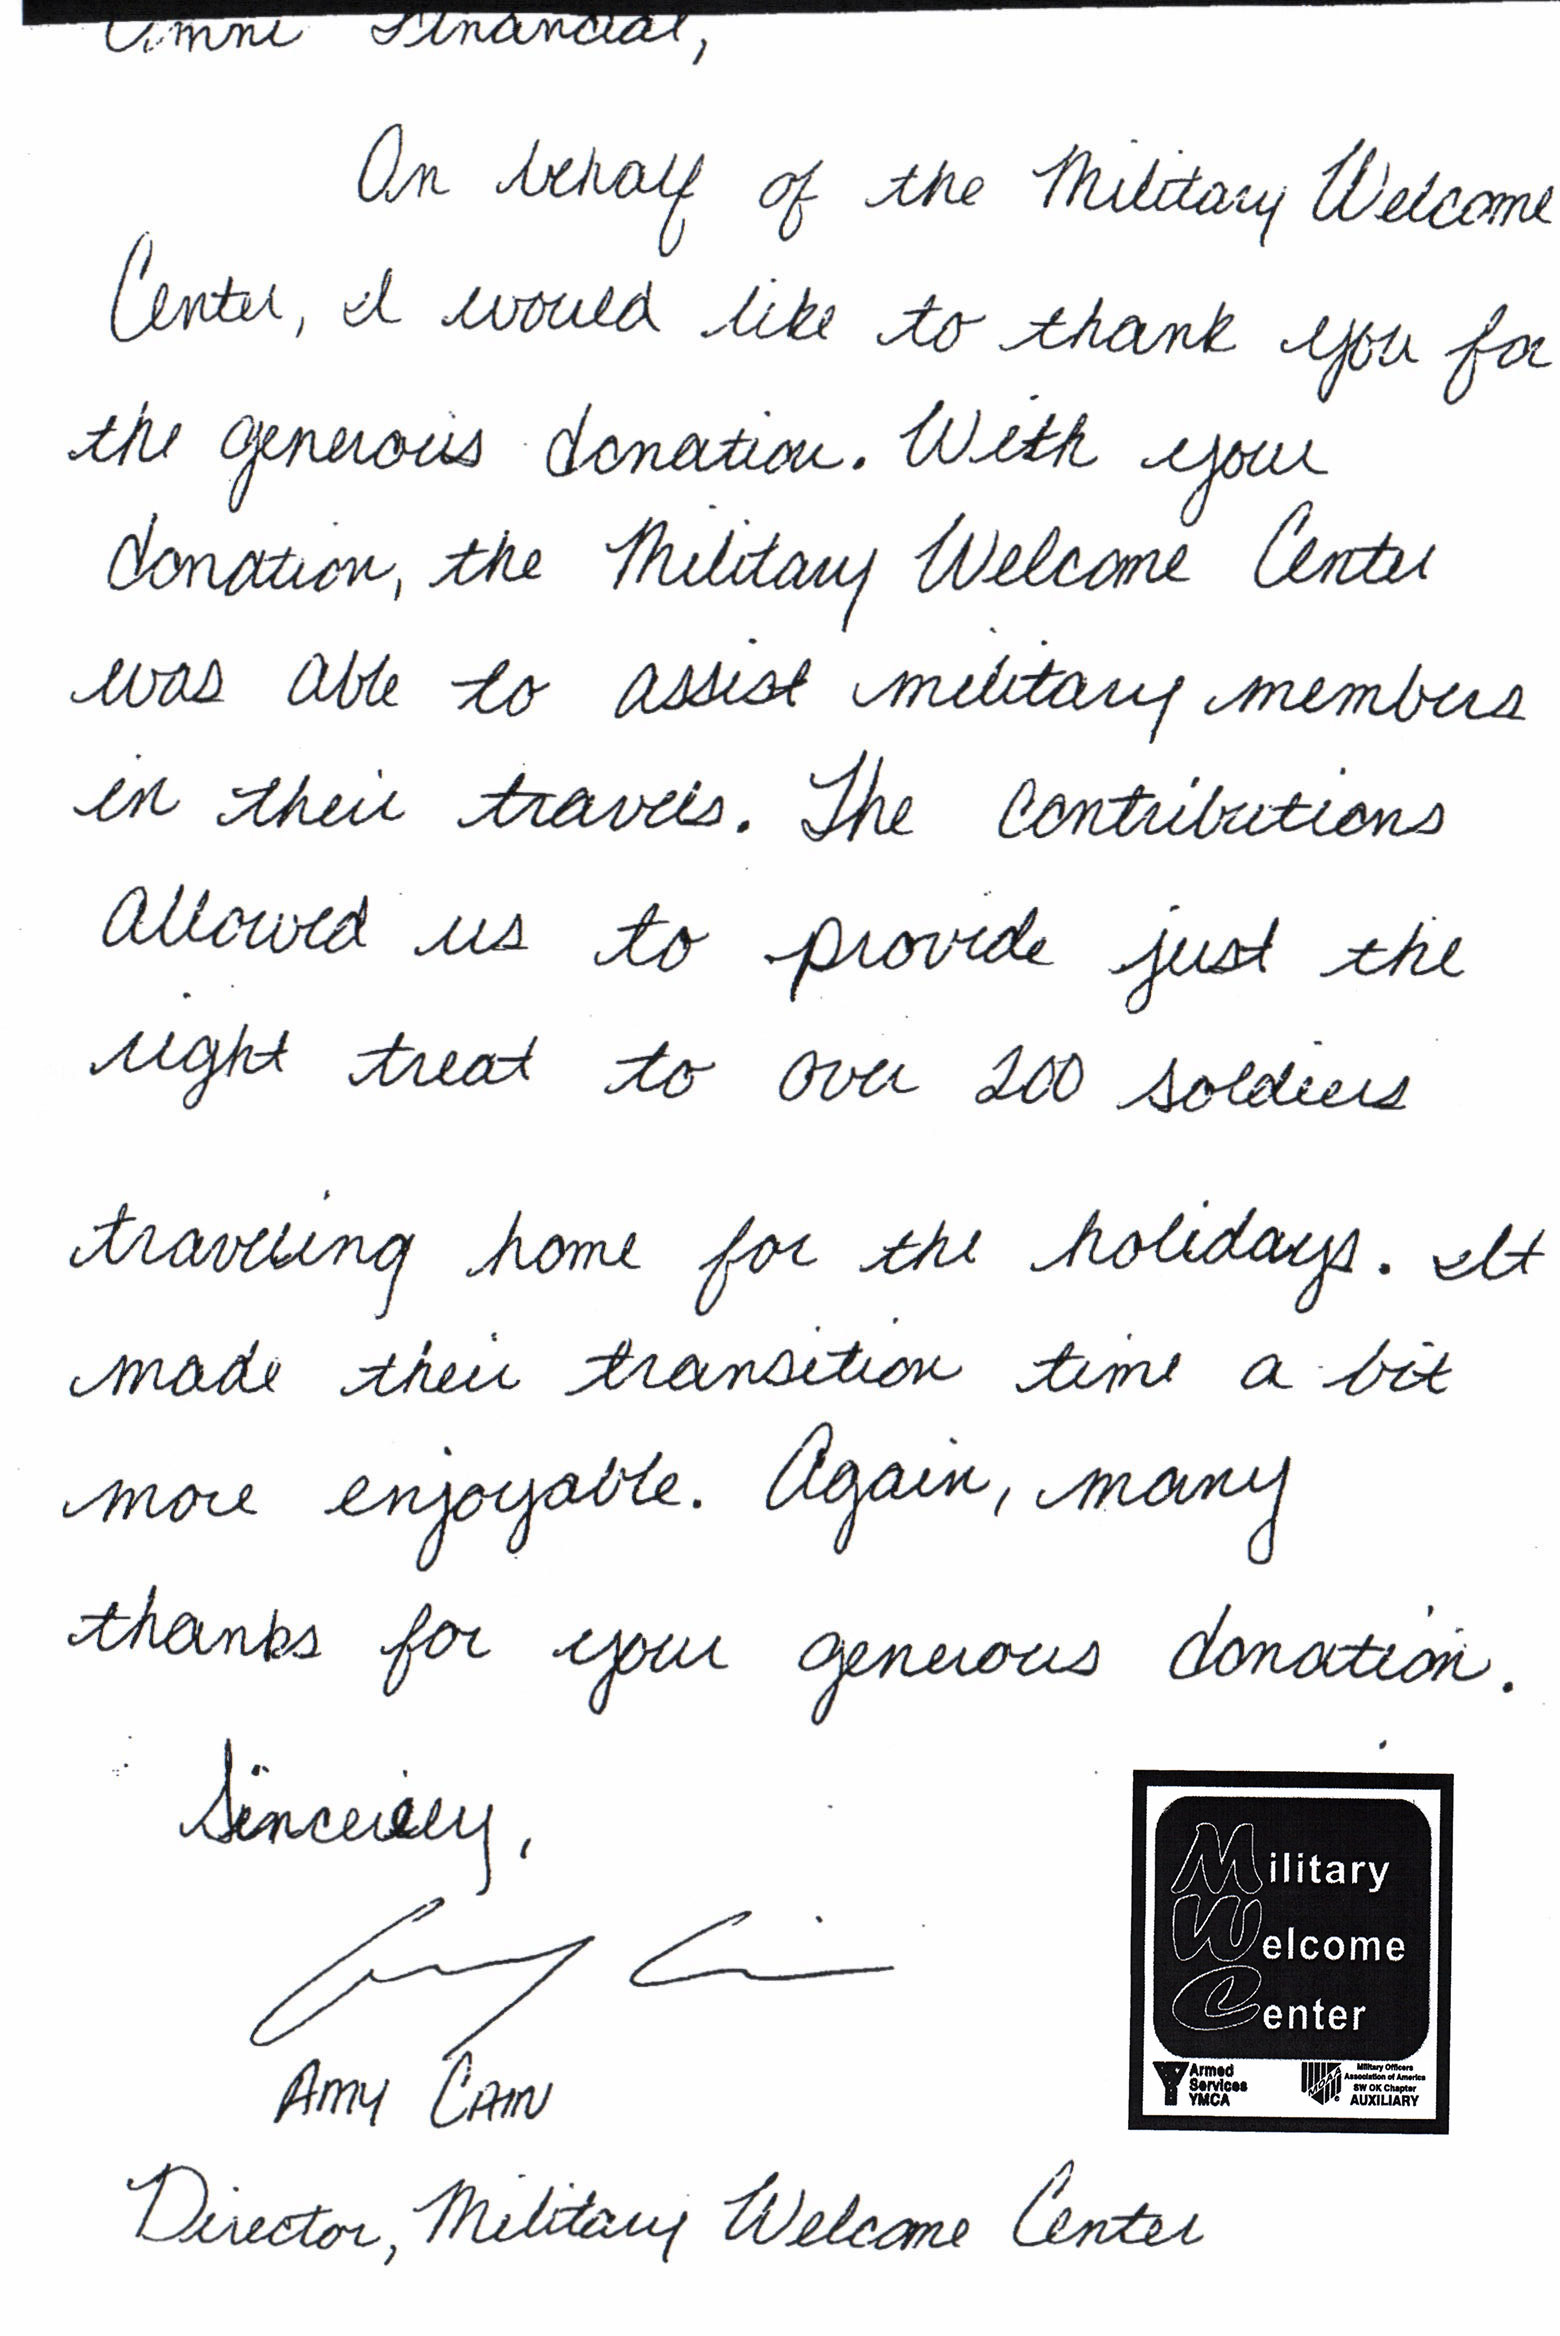 Omni Financial,
On behalf of the Military Welcome
Center, I would like to thank you for
the generous donation. With your
donation, the Military Welcome Center
was able to assist military members
in their travels. The contributions
allowed us to provide just the
right treat to over 200 soldiers
traveling home for the holidays. It
made their transition time a bit
more enjoyable. Again, many
thanks for your generous donation.
Sincerely,
Amy Cain
AMY CAIN
Director, Military Welcome Center
Military
Welcome
Center
Armed
Services
YMCA
MOAA
Military Officers
Association of America
SW OK Chapter
AUXILIARY